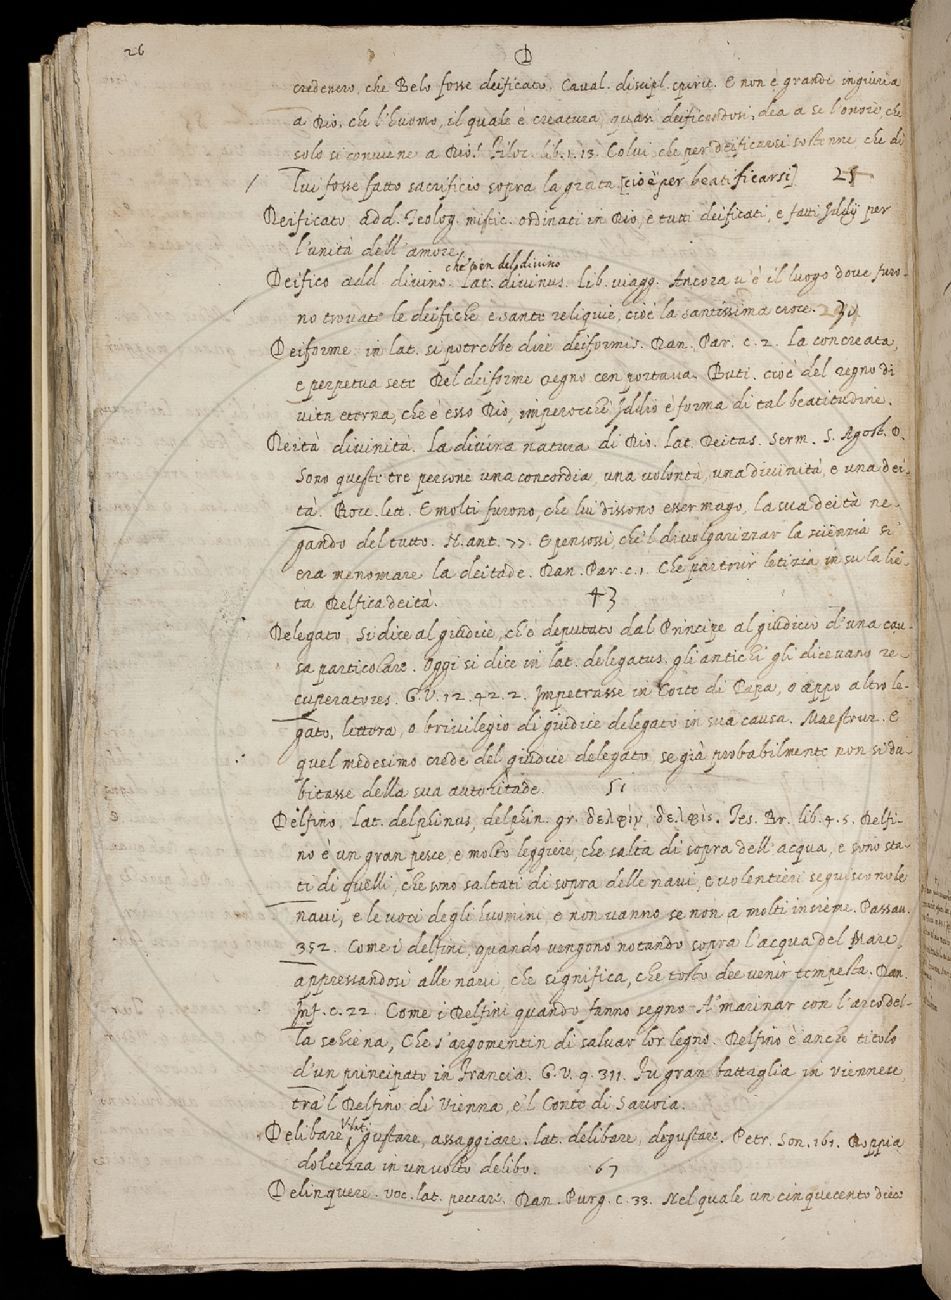 26
D
crederero, che Belo fosse deificato. Caval. discipl. spirit. E non è grande ingiuria
a Dio, che l'huomo, il quale è creatura, quasi deificandosi, dea a se l'onore, che
solo si conviene a Dio? Filoc. lib. 1. 13. Colui, che per deificarsi sostenne, che di
lui fosse fatto sacrificio sopra la grata [cioè per beatificarsi] 25
Deificato add. Teolog. mistic. ordinati in Dio, e tutti deificati, e fatti Iddij per
l'unità dell'amore.
che tien del divino
Deifico add. divino. lat. divinus. lib. viagg. Ancora v'è il luogo dove furo-
no trovate le deifiche e sante reliquie, cioè la santissima croce. 34
Deiforme. in lat. si potrebbe dire deiformis. Dan. Par. c. 2. La concreata,
e perpetua sete Del deiforme regno cen portava. Buti. cioè del regno di
vita eterna, che è esso Dio, imperocchè Iddio è forma di tal beatitudine.
Deità divinità. la divina natura di Dio. lat. Deitas. Serm. S. Agost. D.
Sono questi tre persone una concordia, una volontà, una divinità, e una dei-
tà. Bocc. lett. E molti furono, che lui dissono esser mago, la sua deità ne-
gando del tutto. N. ant. 77. E pensossi, che'l divolgarizzar la scienzia si
era menomare la deitade. Dan. Par. c. 1. Che partorir letizia in su la lie-
ta Delfica deità. 43
Delegato, Si dice al giudice, ch'è deputato dal Principe al giudicio d'una cau-
sa particolare. Oggi si dice in lat. delegatus. gli antichi gli dicevano re-
cuperatores. G.V. 12. 42. 2. Impetrasse in Corte di Papa, o appo altro le-
gato, lettera, o brivilegio di giudice delegato in sua causa. Maestruz. E
quel medesimo crede del giudice delegato, se già probabilmente non si du-
bitasse della sua autoritade. 51
Delfino, Lat. delphinus, delphin. gr. δελφὶν, δελφὶς. Tes. Br. lib. 4. 5. Delfi-
no è un gran pesce, e molto leggiere, che salta di sopra dell'acqua, e sono sta-
ti di quelli, che sono saltati di sopra delle navi, e volentieri seguiscono le
navi, e le voci degli huomini e non vanno se non a molti insieme. Passav.
352. Come i delfini, quando vengono notando sopra l'acqua del Mare,
appressandosi alle navi, che significa, che tosto dee venir tempesta. Dan.
Inf. c. 22. Come i Delfini quando fanno segno A' marinar con l'arco del-
la schiena, Che s'argomentin di salvar lor legno. Delfino è anche titolo
d'un principato in Francia. G.V. 9. 311. Fu gran battaglia in Viennese
tra'l Delfino di Vienna, e'l Conte di Savoia.
Delibare, gustare, assaggiare. lat. delibare, degustare. Petr. Son. 161. Doppia
dolcezza in un volto delibo. 67
Delinquere. voc. lat. peccare. Dan. Purg. c. 33. Nel quale un cinquecento diece